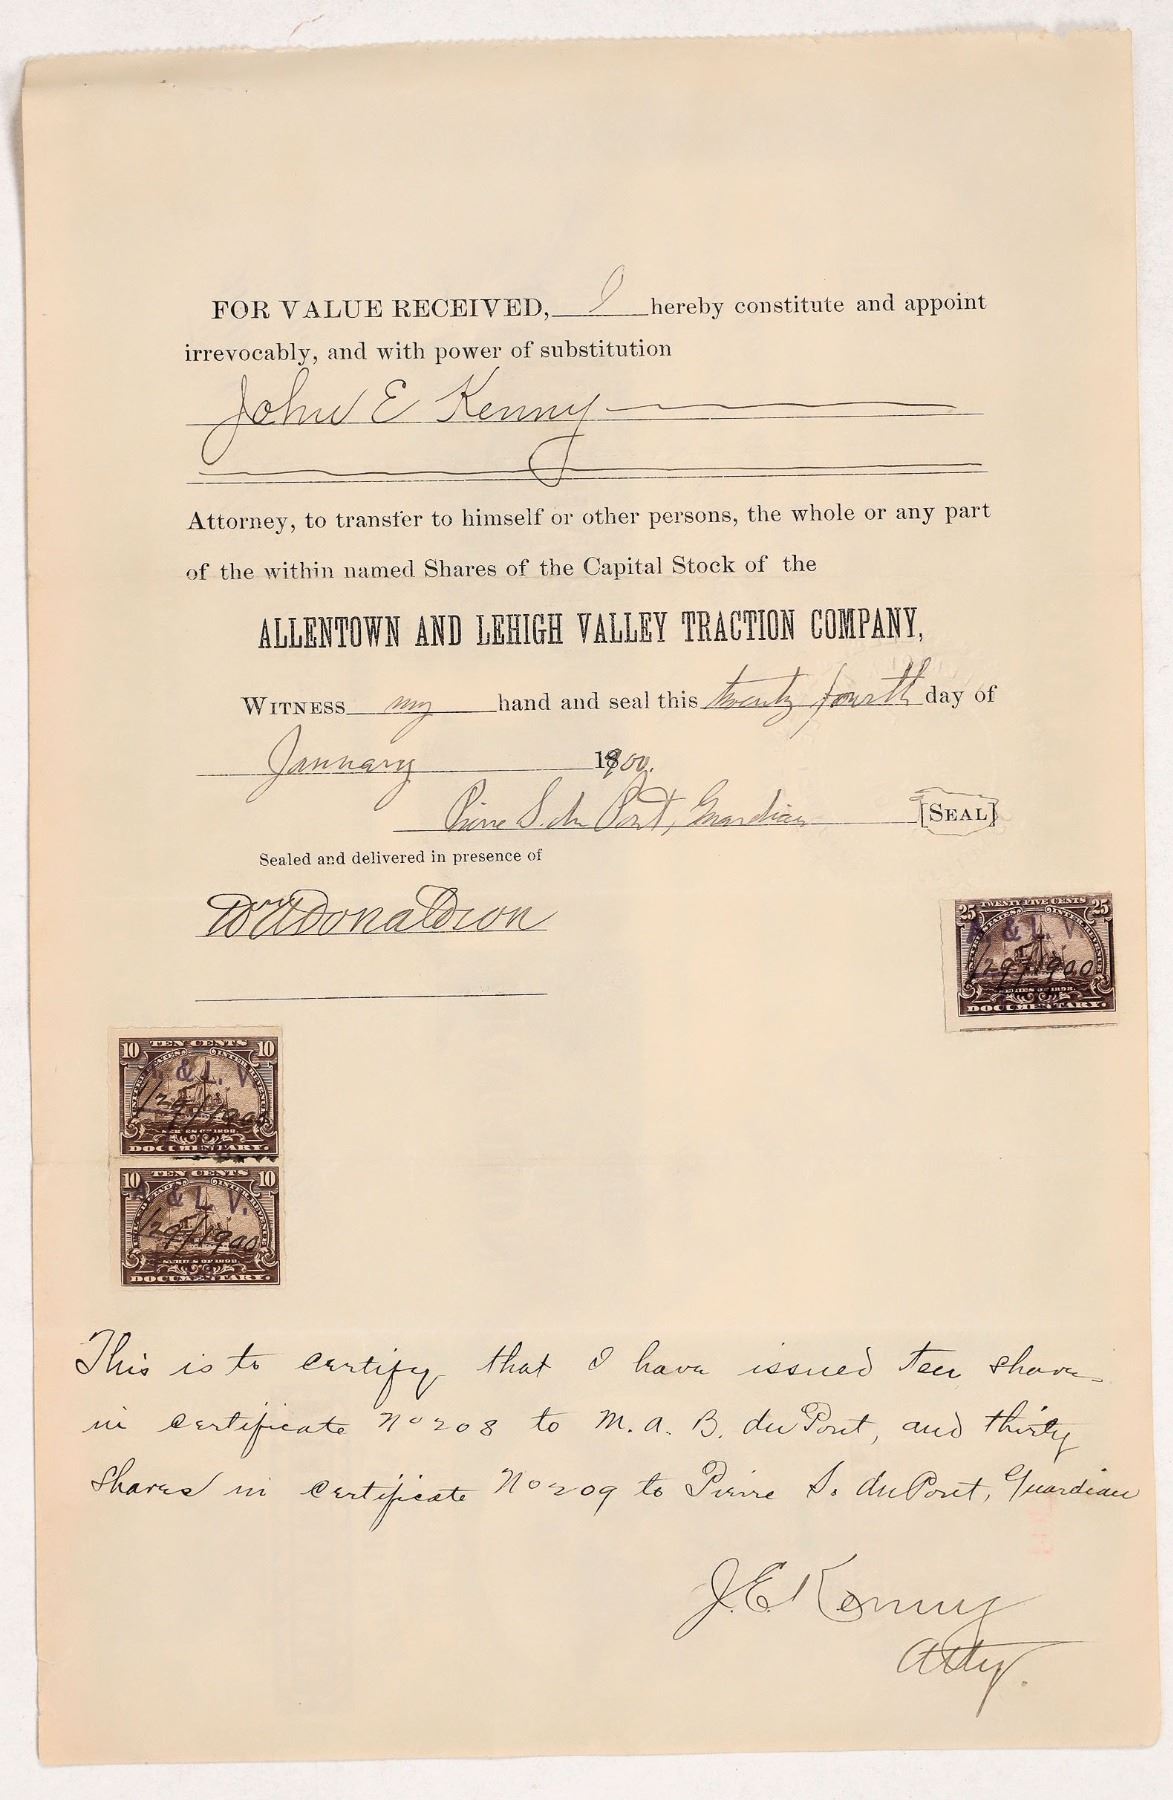 FOR VALUE RECEIVED, I hereby constitute and appoint
irrevocably, and with power of substitution
John E Kenny
Attorney, to transfer to himself or other persons, the whole or any part
of the within named Shares of the Capital Stock of the
ALLENTOWN AND LEHIGH VALLEY TRACTION COMPANY,
WITNESS my hand and seal this twenty fourth day of
January 1900.
Pierre S. du Pont, Guardian [SEAL]
Sealed and delivered in presence of
Wm Donaldson
25 TWENTY FIVE CENTS 25
A. & L. V.
1/29/1900
SERIES OF 1898.
DOCUMENTARY.
10 TEN CENTS 10
& L. V.
1/29/1900
SERIES OF 1898.
DOCUMENTARY.
10 TEN CENTS 10
A. & L. V.
1/29/1900
SERIES OF 1898.
DOCUMENTARY.
This is to certify that I have issued ten shares
in certificate No 208 to M. A. B. du Pont, and thirty
shares in certificate No 209 to Pierre S. du Pont, Guardian
J. E. Kenny
Atty.